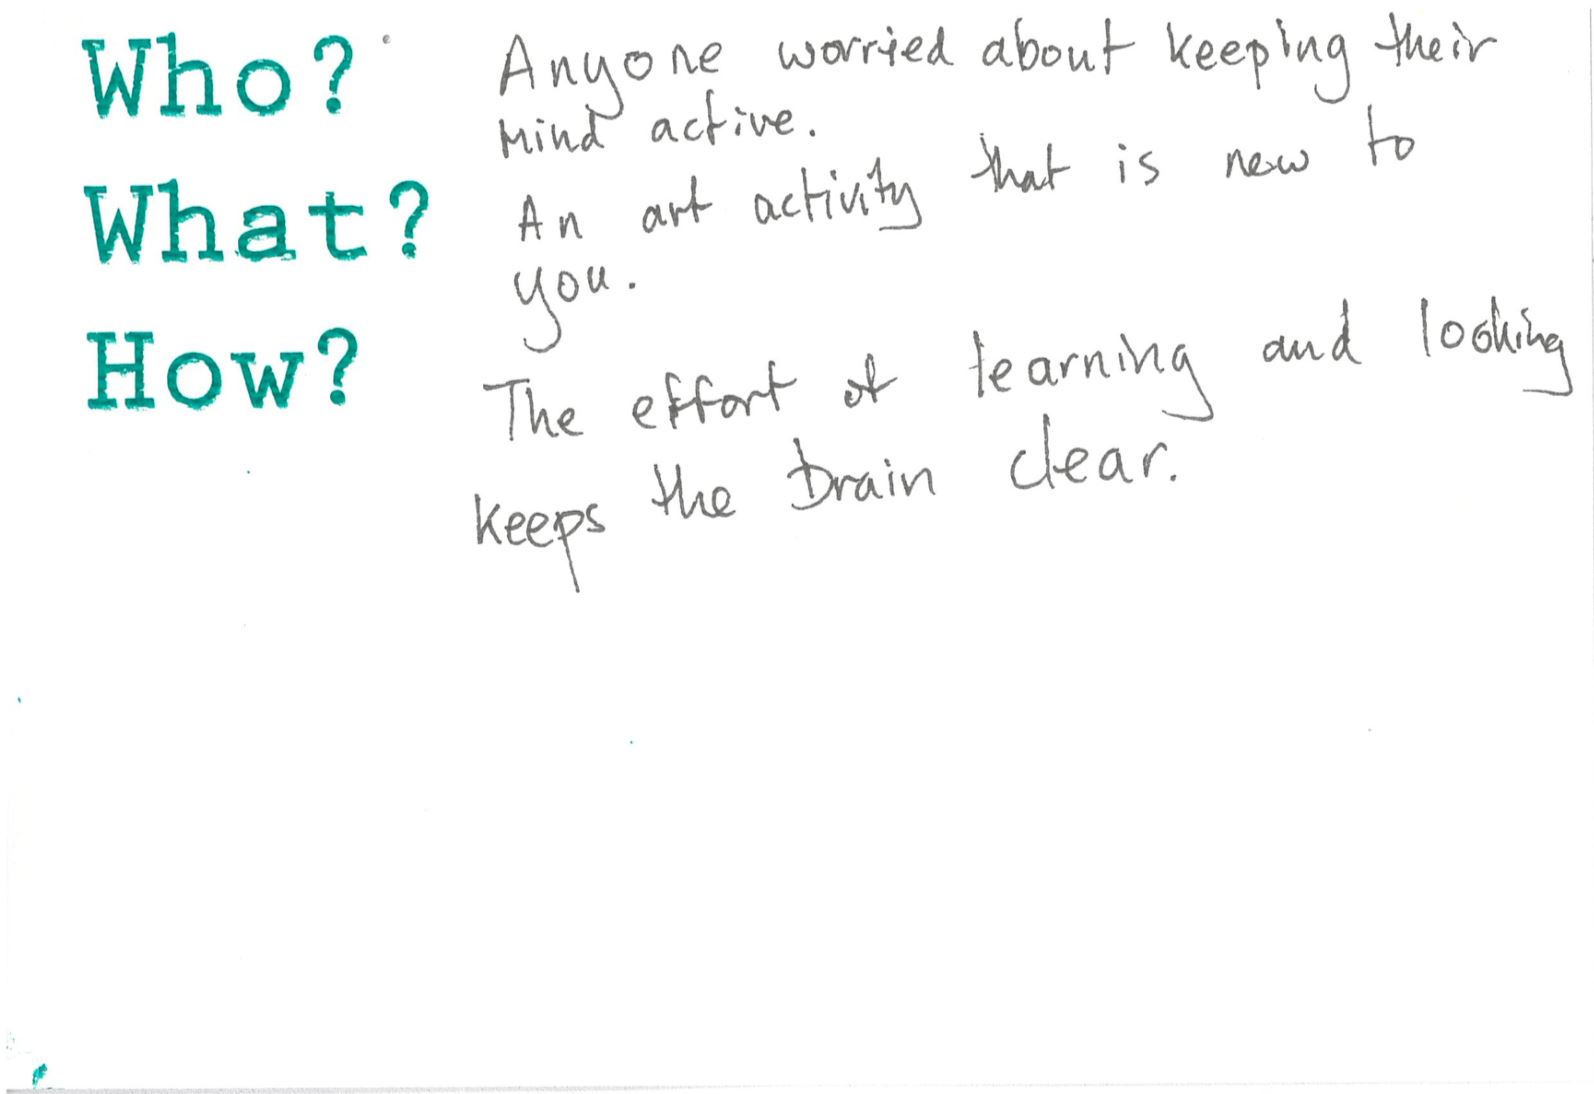 Who? Anyone worried about keeping their
mind active.
What? An art activity that is new to
you.
How? The effort of learning and looking
keeps the brain clear.